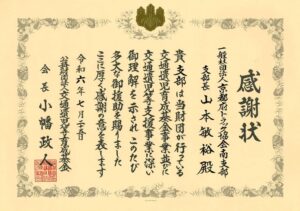 感謝状
一般社団法人京都府トラック協会南支部
支部長 山本敏裕殿
貴支部は当財団が行っている
交通遺児育成基金事業並に
交通遺児等支援事業に深い
御理解を示されこのたび
多大な御援助を賜りました
ここに厚く感謝の意を表します
令和六年七月三日
公益財団法人交通遺児等育成基金
会長 小幡政人